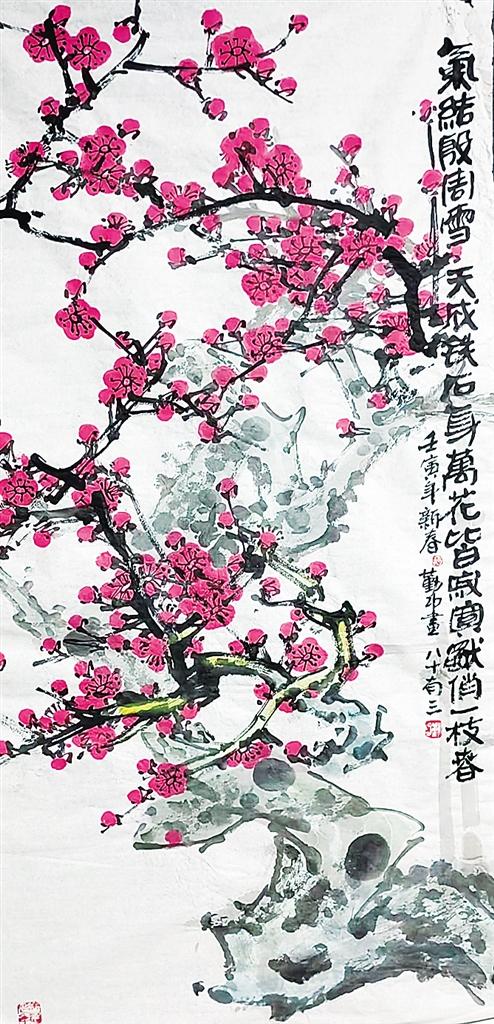 氣結殷周雪天成鉄石身萬花皆寂寞獨俏一枝春
壬寅年新春 勤 畫 八十有三